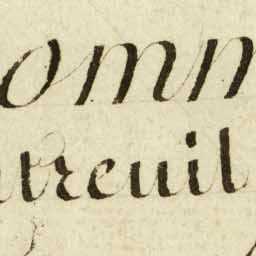 omm
treuil